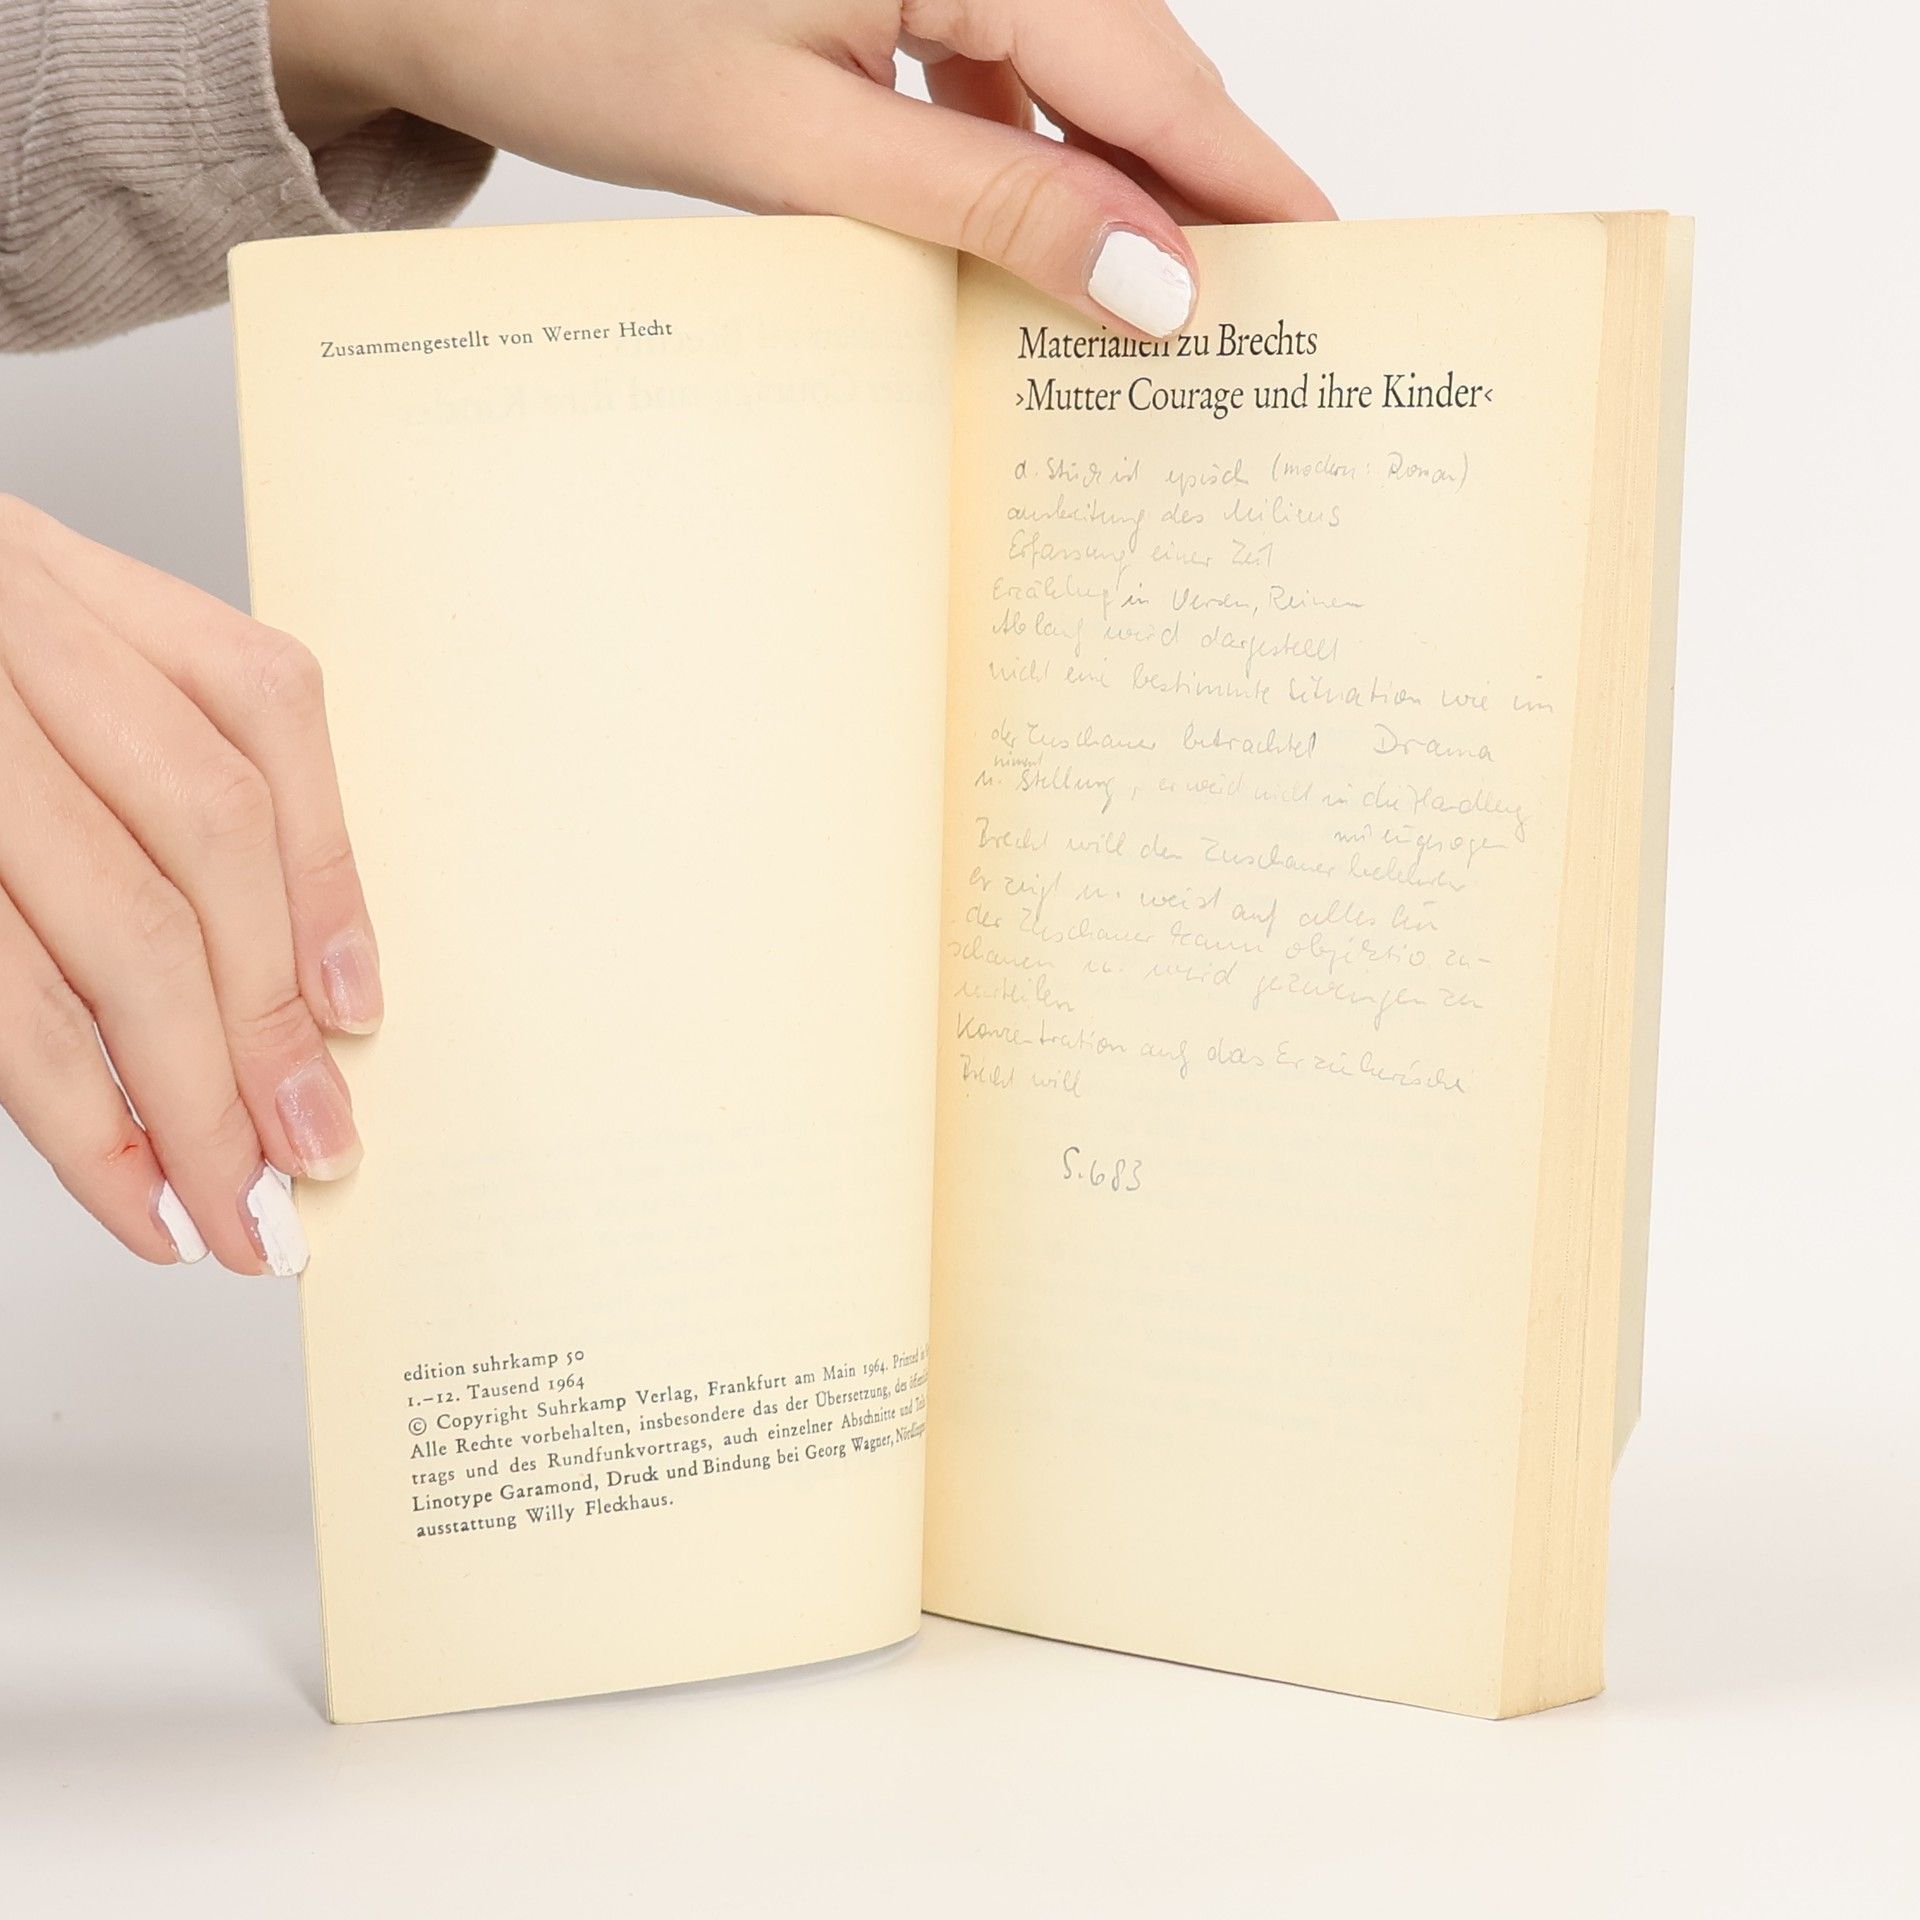 Zusammengestellt von Werner Hecht
edition suhrkamp 50
1.–12. Tausend 1964
© Copyright Suhrkamp Verlag, Frankfurt am Main 1964. Printed in
Alle Rechte vorbehalten, insbesondere das der Übersetzung, des
trags und des Rundfunkvortrags, auch einzelner Abschnitte und
Linotype Garamond, Druck und Bindung bei Georg Wagner, Nördlingen
ausstattung Willy Fleckhaus.
Materialien zu Brechts
›Mutter Courage und ihre Kinder‹
d. Stück ist episch (modern: Roman)
des Milieus
Erfassung einer Zeit
Erzählung in Versen, Reimen
Ablauf wird dargestellt
nicht eine bestimmte Situation wie im
Drama
der Zuschauer betrachtet
nimmt
u. Stellung, er wird nicht in die Handlung
Brecht will den Zuschauer
er zeigt u. weist auf alles hin
der Zuschauer kann objektiv zu-
schauen u. wird gezwungen zu
urteilen
Konzentration auf das Erzieherische
Brecht will
S. 683